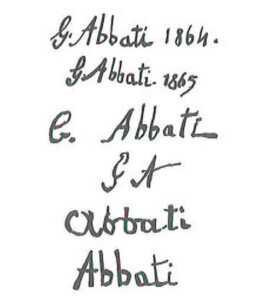 G. Abbati 1864.
G. Abbati. 1865
G. Abbati
G A
Abbati
Abbati